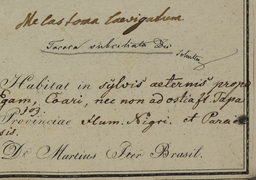 Melastoma laevigatum
Tococa subciliata DC
Habitat in sylvis aeternis prope
Egam, Coari, nec non ad ostia fl. Tapa
Provinciae Flum. Nigri. et Para
sis.
Dr Martius Iter Brasil.